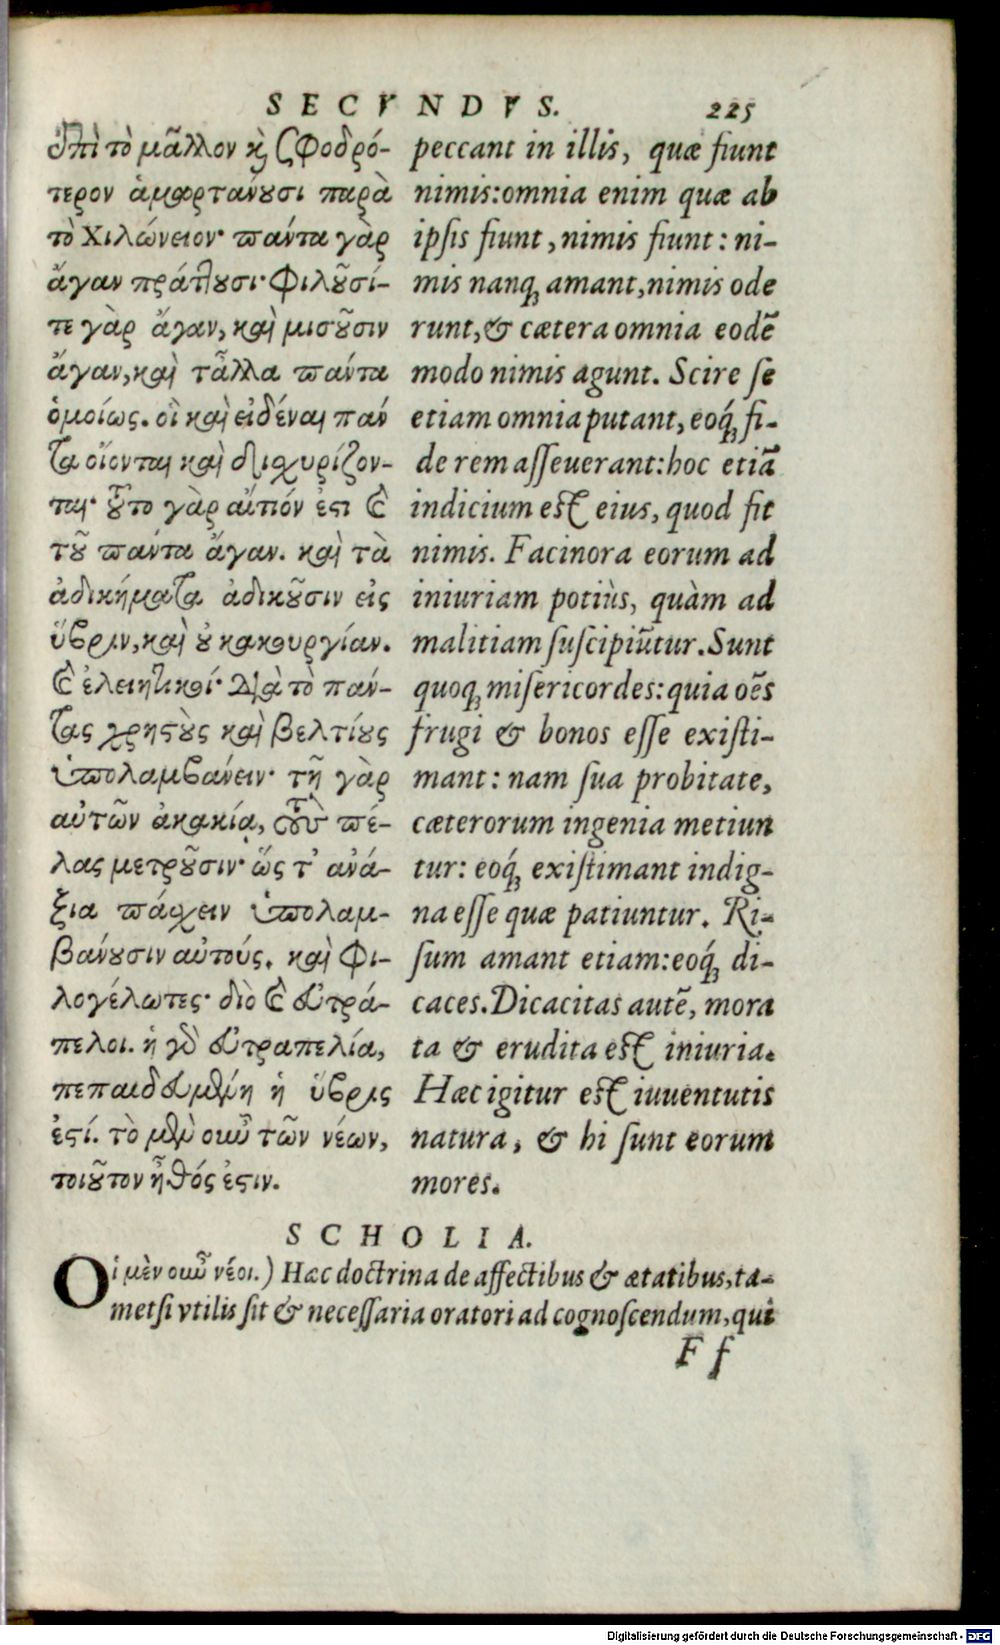 SECVNDVS. 225
ἐπὶ τὸ μᾶλλον κ̀ σφοδρό-
τερον ἁμαρτάνουσι παρὰ
τὸ Χιλώνειον· πάντα γὰρ
ἄγαν πράττουσι· φιλοῦσί-
τε γὰρ ἄγαν, καὶ μισοῦσιν
ἄγαν, καὶ τἆλλα πάντα
ὁμοίως. οἱ καὶ εἰδέναι πάν
τα οἴονται καὶ διισχυρίζον-
ται· τοῦτο γὰρ αἴτιόν ἐστι καὶ
τοῦ πάντα ἄγαν. καὶ τὰ
ἀδικήματα ἀδικοῦσιν εἰς
ὕβριν, καὶ οὐ κακουργίαν.
καὶ ἐλεητικοί· διὰ τὸ πάν-
τας χρηστοὺς καὶ βελτίους
ὑπολαμβάνειν· τῇ γὰρ
αὑτῶν ἀκακίᾳ, τοὺς πέ-
λας μετροῦσιν· ὥς τ' ἀνά-
ξια πάσχειν ὑπολαμ-
βάνουσιν αὐτούς. καὶ φι-
λογέλωτες· διὸ καὶ εὐτρά-
πελοι. ἡ γὸ εὐτραπελία,
πεπαιδευμένη ἡ ὕβρις
ἐστί. τὸ μὲν οὖν τῶν νέων,
τοιοῦτον ἦθός ἐστιν.
peccant in illis, quæ fiunt
nimis:omnia enim quæ ab
ipsis fiunt, nimis fiunt: ni-
mis nanq; amant,nimis ode
runt,& cætera omnia eodē
modo nimis agunt. Scire se
etiam omnia putant, eoq́; fi-
de rem asseuerant:hoc etiā
indicium est eius, quod fit
nimis. Facinora eorum ad
iniuriam potiùs, quàm ad
malitiam suscipiūtur. Sunt
quoq; misericordes: quia oēs
frugi & bonos esse existi-
mant: nam sua probitate,
cæterorum ingenia metiun
tur: eoq́; existimant indig-
na esse quæ patiuntur. Ri-
sum amant etiam:eoq́; di-
caces. Dicacitas autē, mora
ta & erudita est iniuria.
Hæc igitur est iuuentutis
natura, & hi sunt eorum
mores.
SCHOLIA.
Οἱ μὲν οὖν νέοι.) Hæc doctrina de affectibus & ætatibus,ta-
metsi vtilis sit & necessaria oratori ad cognoscendum,qui
F f
Digitalisierung gefördert durch die Deutsche Forschungsgemeinschaft - DFG